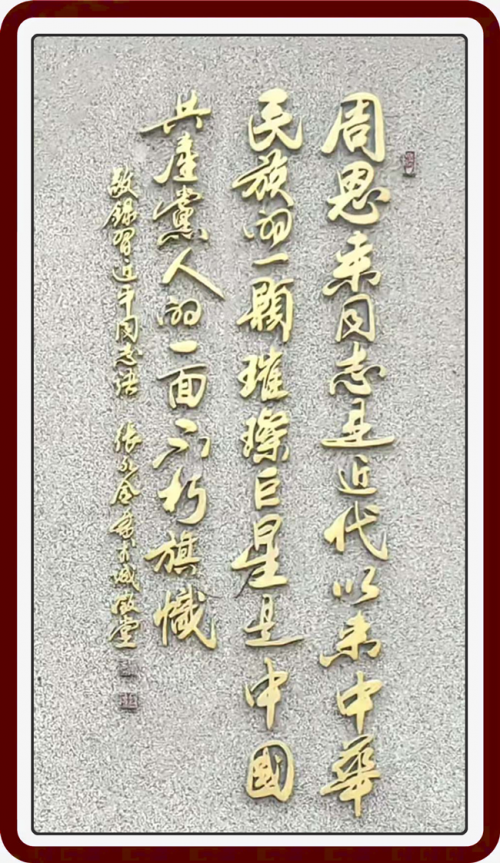 周恩来同志是近代以来中華
民族的一顆璀璨巨星是中國
共產黨人的一面不朽旗幟
敬錄習近平同志語 張